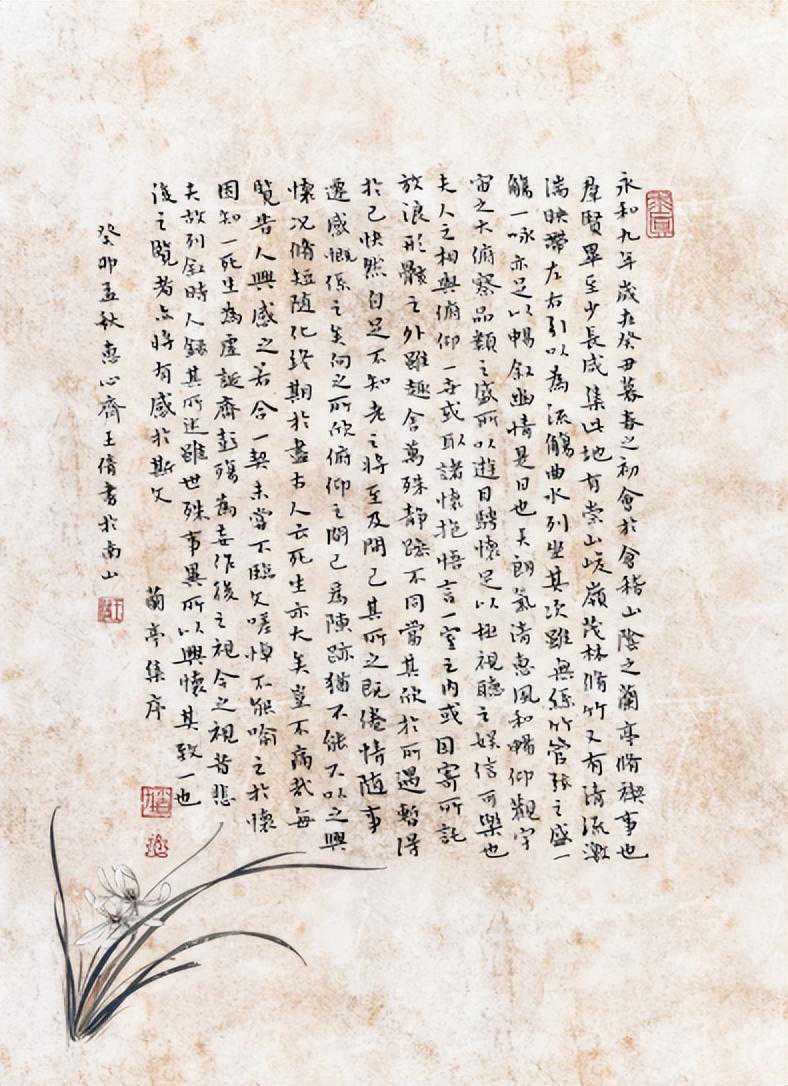 永和九年歲在癸丑暮春之初會於會稽山陰之蘭亭脩禊事也
羣賢畢至少長咸集此地有崇山峻嶺茂林脩竹又有清流激
湍映帶左右引以為流觴曲水列坐其次雖無絲竹管弦之盛一
觴一詠亦足以暢敘幽情是日也天朗氣清惠風和暢仰觀宇
宙之大俯察品類之盛所以遊目騁懷足以極視聽之娛信可樂也
夫人之相與俯仰一世或取諸懷抱悟言一室之內或因寄所託
放浪形骸之外雖趣舍萬殊靜躁不同當其欣於所遇暫得
於己快然自足不知老之將至及間己其所之既倦情隨事
遷感慨係之矣向之所欣俯仰之間已為陳跡猶不能不以之興
懷況脩短隨化終期於盡古人云死生亦大矣豈不痛哉每
覽昔人興感之若合一契未嘗不臨文嗟悼不能喻之於懷
固知一死生為虛誕齊彭殤為妄作後之視今之視昔悲
夫故列敘時人錄其所述雖世殊事異所以興懷其致一也
後之覽者亦將有感於斯文
蘭亭集序
癸卯孟秋惠心齋王倩書於南山